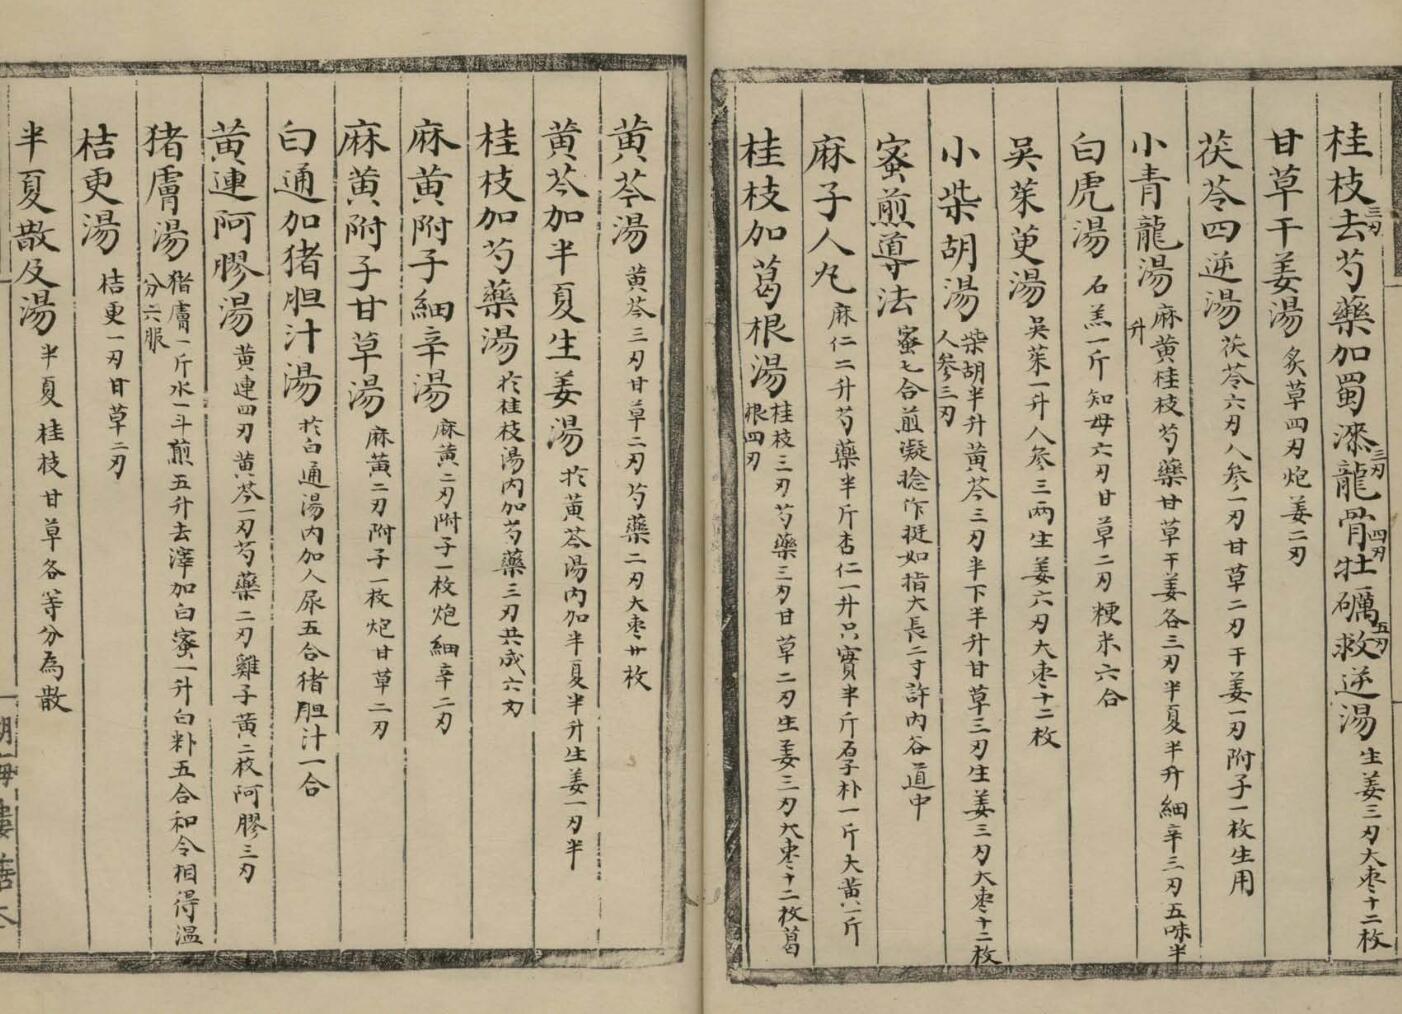 桂枝三刄去芍藥加蜀漆三刄龍骨四刄牡礪五刄救逆湯 生姜三刄大枣十二枚
甘草干姜湯 炙草四刄炮姜二刄
茯苓四逆湯 茯苓六刄人参一刄甘草二刄干姜一刄附子一枚生用
小青龍湯 麻黄桂枝芍藥甘草干姜各三刄半夏半升細辛三刄五味半升
白虎湯 石羔一斤知母六刄甘草二刄粳米六合
吴茱萸湯 吴茱一升人参三两生姜六刄大枣十二枚
小柴胡湯 柴胡半升黄芩三刄半下半升甘草三刄生姜三刄大枣十二枚人参三刄
蜜煎導法 蜜七合煎凝捻作挺如指大長二寸許内谷道中
麻子人丸 麻仁二升芍藥半斤杏仁一升只實半斤石子朴一斤大黄一斤
桂枝加葛根湯 桂枝三刄芍藥三刄甘草二刄生姜三刄大枣十二枚葛根四刄
黄芩湯 黄芩三刄甘草二刄芍藥二刄大枣廿枚
黄芩加半夏生姜湯 扵黄芩湯内加半夏半升生姜一刄半
桂枝加芍藥湯 扵桂枝湯内加芍藥三刄共成六刄
麻黄附子細辛湯 麻黄二刄附子一枚炮細辛二刄
麻黄附子甘草湯 麻黄二刄附子一枚炮甘草二刄
白通加猪胆汁湯 扵白通湯内加人尿五合猪胆汁一合
黄連阿膠湯 黄連四刄黄芩一刄芍藥二刄雞子黄二枚阿膠三刄
猪膚湯 猪膚一斤水一斗煎五升去滓加白蜜一升白粉五合和令相得温分六服
桔更湯 桔更一刄甘草二刄
半夏散及湯 半夏桂枝甘草各等分為散